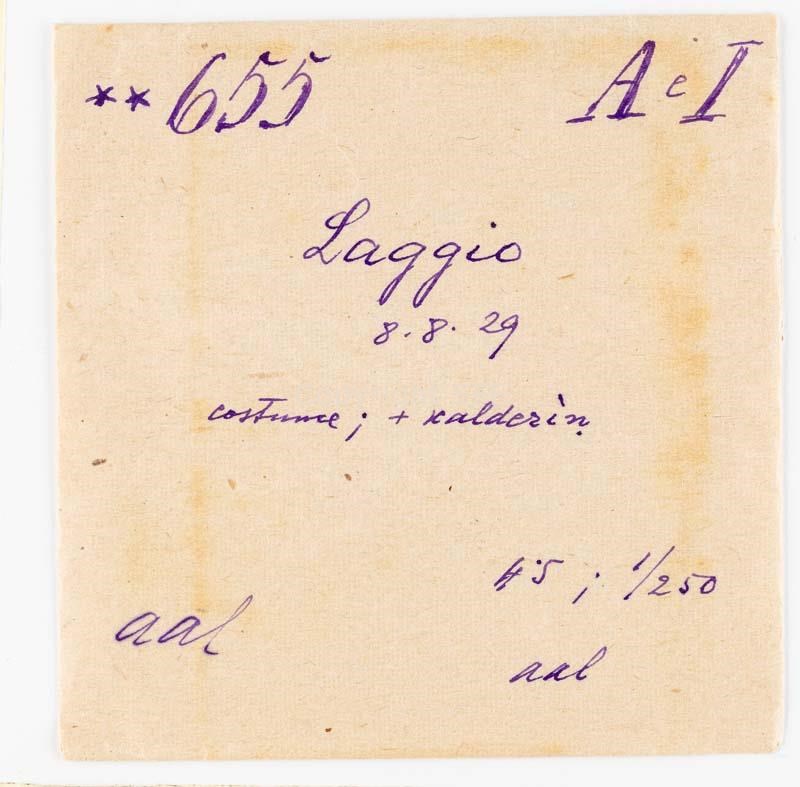 **655 AeI
Laggio
8.8.29
costume; + kalderìṇ
4.5 ; 1/250
aal aal